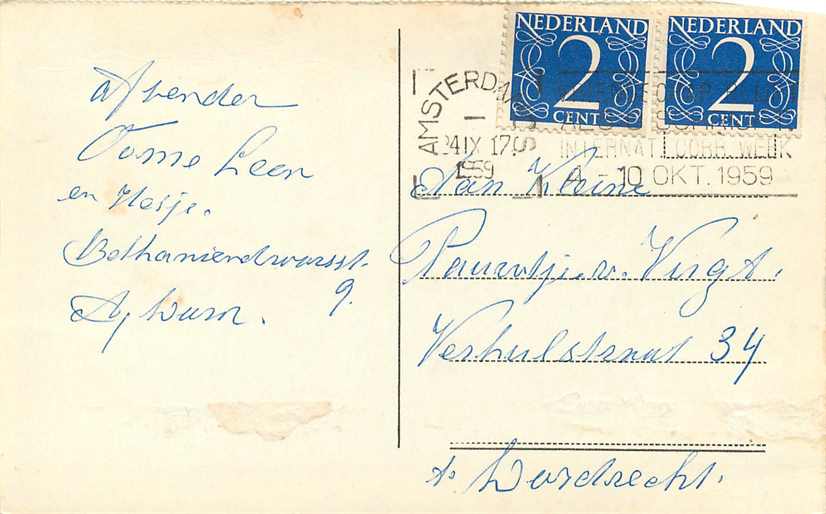 Afzender
Oome Leen
en
Bethaniendwarsst.
9.
A,dam.
NEDERLAND
2
CENT
NEDERLAND
2
CENT
AMSTERDAM
24 IX 17
1959
INTERNAT. CORR. WEEK
4 - 10 OKT. 1959
Aan Kleine
v. Vugt.
Verhulstraat 34
Dordrecht.